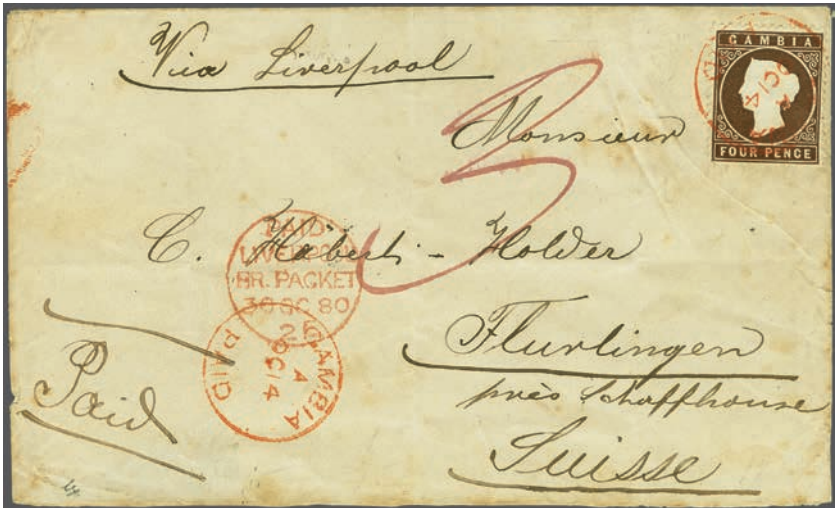 Via Liverpool
GAMBIA
OC 14
FOUR PENCE
Monsieur
3
C. Häberli-Holder
PAID
LIVERPOOL
BR. PACKET
30 OC 80
2
GAMBIA
PAID
A
OC 14
Flurlingen
près Schaffhouse
Suisse
Paid